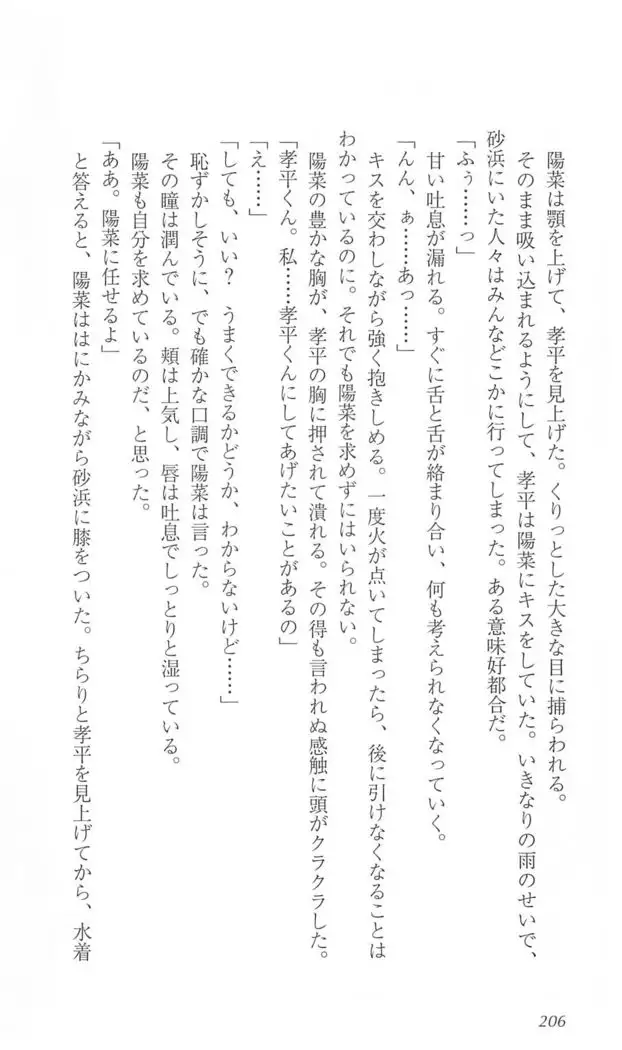 陽菜は顎を上げて、孝平を見上げた。くりっとした大きな目に捕らわれる。
そのまま吸い込まれるようにして、孝平は陽菜にキスをしていた。いきなりの雨のせいで、
砂浜にいた人々はみんなどこかに行ってしまった。ある意味好都合だ。
「ふぅ……っ」
甘い吐息が漏れる。すぐに舌と舌が絡まり合い、何も考えられなくなっていく。
「んん、ぁ……あっ……」
キスを交わしながら強く抱きしめる。一度火が点いてしまったら、後に引けなくなることは
わかっているのに。それでも陽菜を求めずにはいられない。
陽菜の豊かな胸が、孝平の胸に押されて潰れる。その得も言われぬ感触に頭がクラクラした。
「孝平くん。私……孝平くんにしてあげたいことがあるの」
「え……」
「しても、いい？　うまくできるかどうか、わからないけど……」
恥ずかしそうに、でも確かな口調で陽菜は言った。
その瞳は潤んでいる。頬は上気し、唇は吐息でしっとりと湿っている。
陽菜も自分を求めているのだ、と思った。
「ああ。陽菜に任せるよ」
と答えると、陽菜ははにかみながら砂浜に膝をついた。ちらりと孝平を見上げてから、水着
206